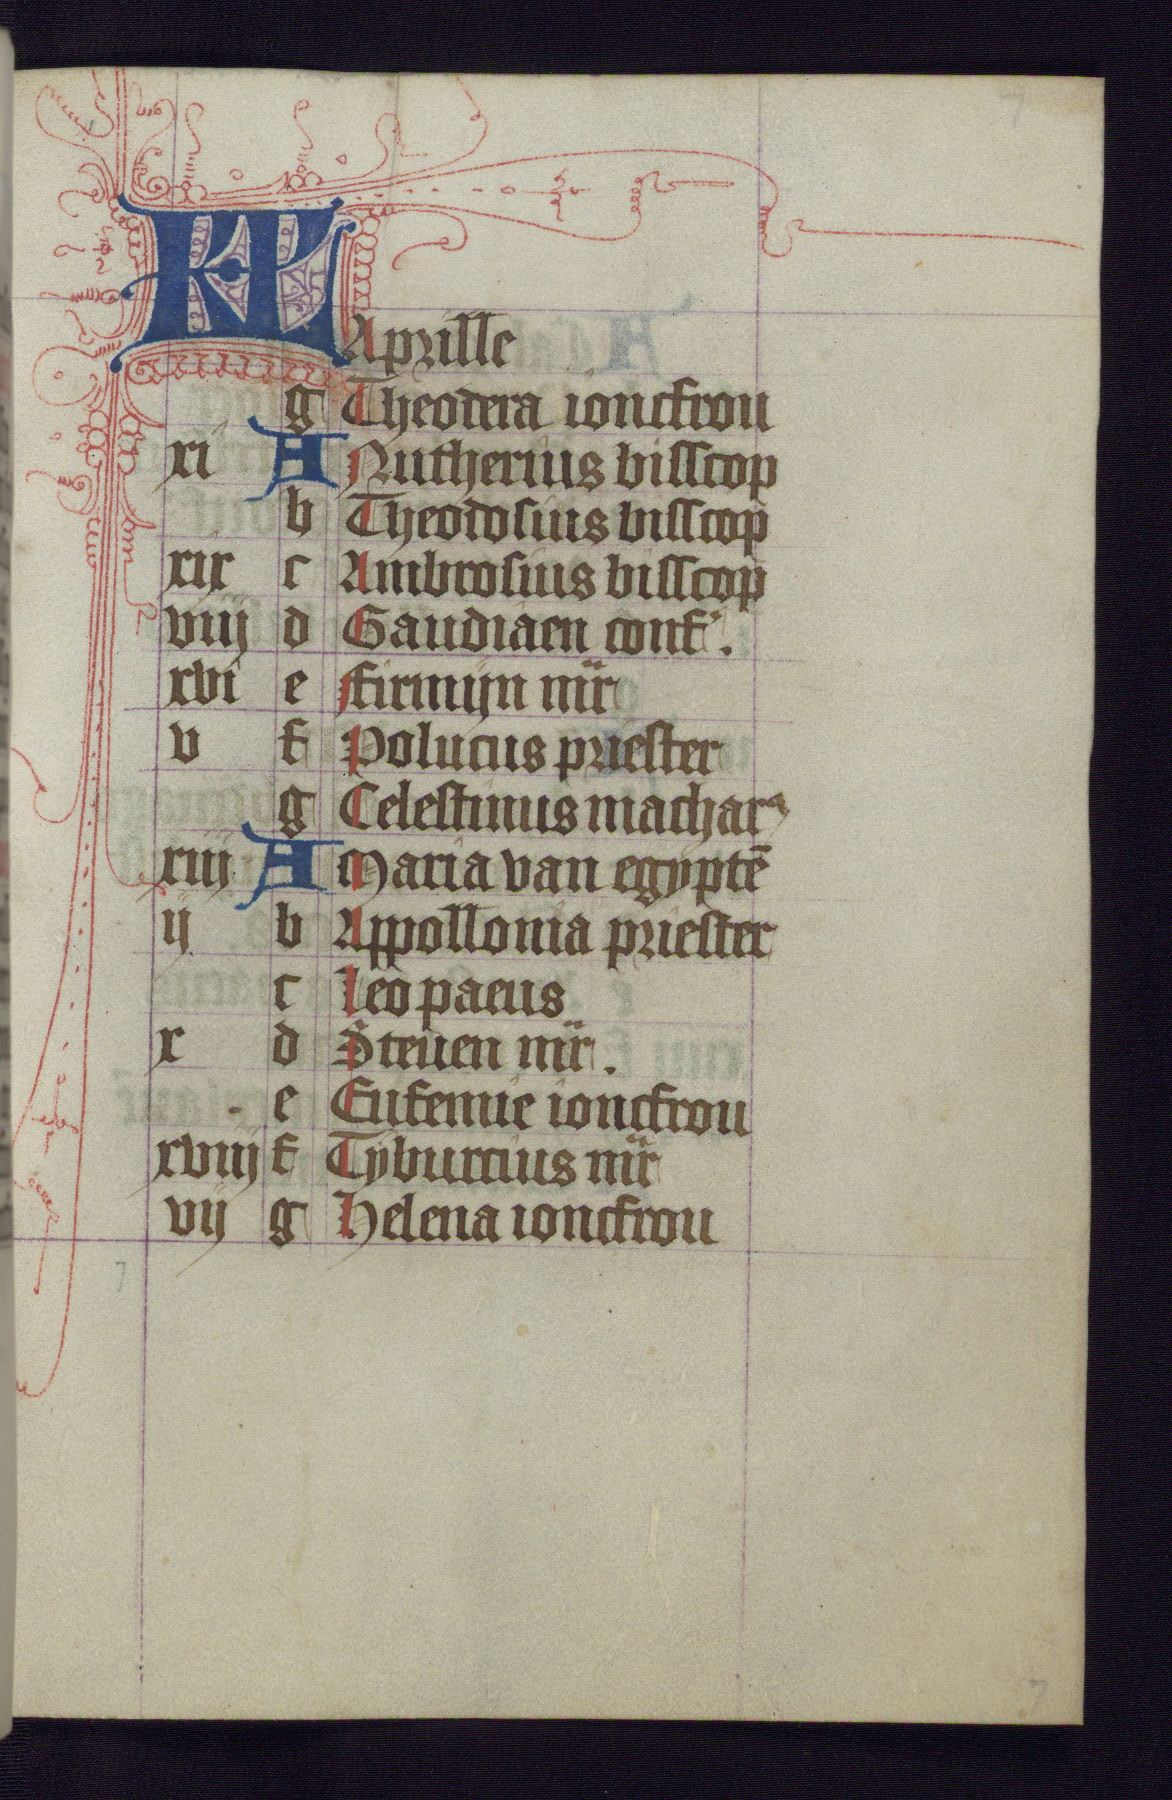 KL Aprille
g Theodera ioncfrou
xi A Nutherius bisscop
b Theodosius bisscop
xix c Ambrosius bisscop
viij d Gaudiaen conf'.
xvi e Firmijn mr̄
v f Polucus priester
g Celestinus machar
xiij A Maria van egyptē
ij b Appollonia priester
c Leo paeus
x d Steuen mr̄.
e Eufemie ioncfrou
xviij f Tyburcius mr̄
vij g Helena ioncfrou
7
7
7